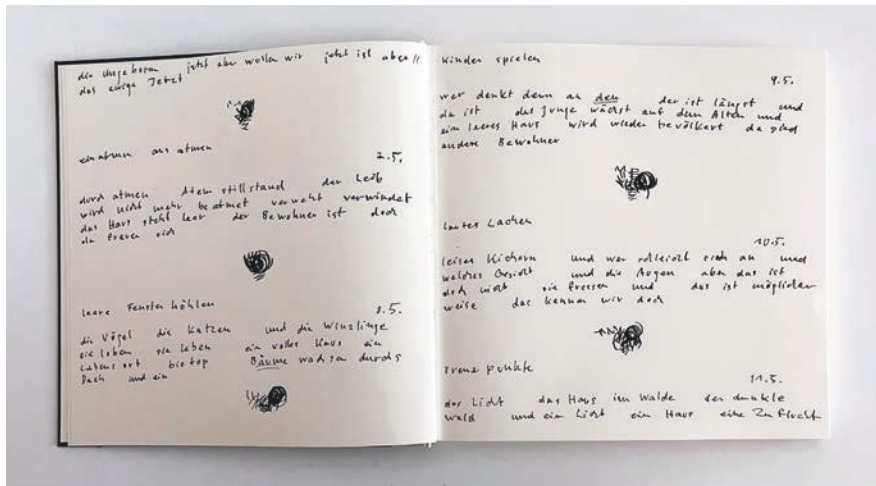 die Ungeboren jetzt aber wollen wir jetzt ist aber
das ewige Jetzt
einatmen aus atmen
7.5.
durch atmen Atem stillstand der Leib
wird nicht mehr beatmet verweht verwindet
das Haus steht leer der Bewohner ist doch
da freuen sich
leere Fenster höhlen
8.5.
die Vögel die Katzen und die Winzlinge
sie loben sie leben ein volles Haus ein
Lebens ort bio top Bäume wachsen durchs
Dach und ein
Kinder spielen
9.5.
wer denkt denn an den der ist längst und
da ist das Junge wächst auf dem Alten und
ein leeres Haus wird wieder bevölkert da sind
andere Bewohner
lautes Lachen
10.5.
leises Kichern und wer schleicht sich an und
welches Gesicht und die Augen aber das ist
doch nicht sie fressen und das ist möglicher
weise das kennen wir doch
11.5.
das Licht das Haus im Walde der dunkle
wald und ein Licht ein Haus eine Zuflucht